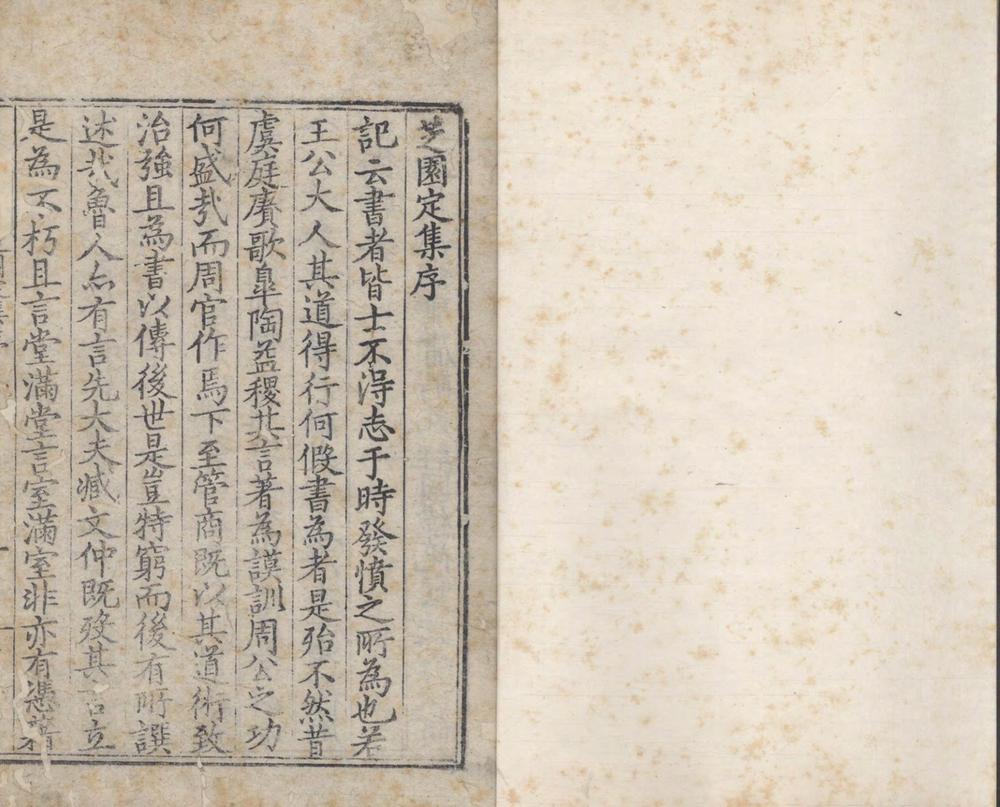 芝園定集序
記云書者皆士不淂志于時發憤之所為也若
王公大人其道得行何假書為者是殆不然昔
虞庭賡歌臯陶益稷其言著為謨訓周公之功
何盛㢤而周官作焉下至管商既以其道術致
治強且為書以傳後世是豈特窮而後有所譔
述㢤魯人亦有言先大夫臧文仲既殁其言立
是為不朽且言堂滿堂言室滿室非亦有憑藉